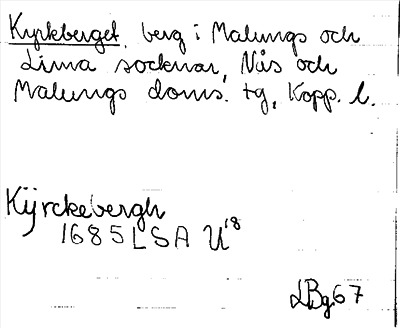 Kyrkberget, berg i Malungs och
Lima socknar, Nås och
Malungs doms. tg, Kopp. l.
Kÿrckebergh
1685 LSA U18
LBg67